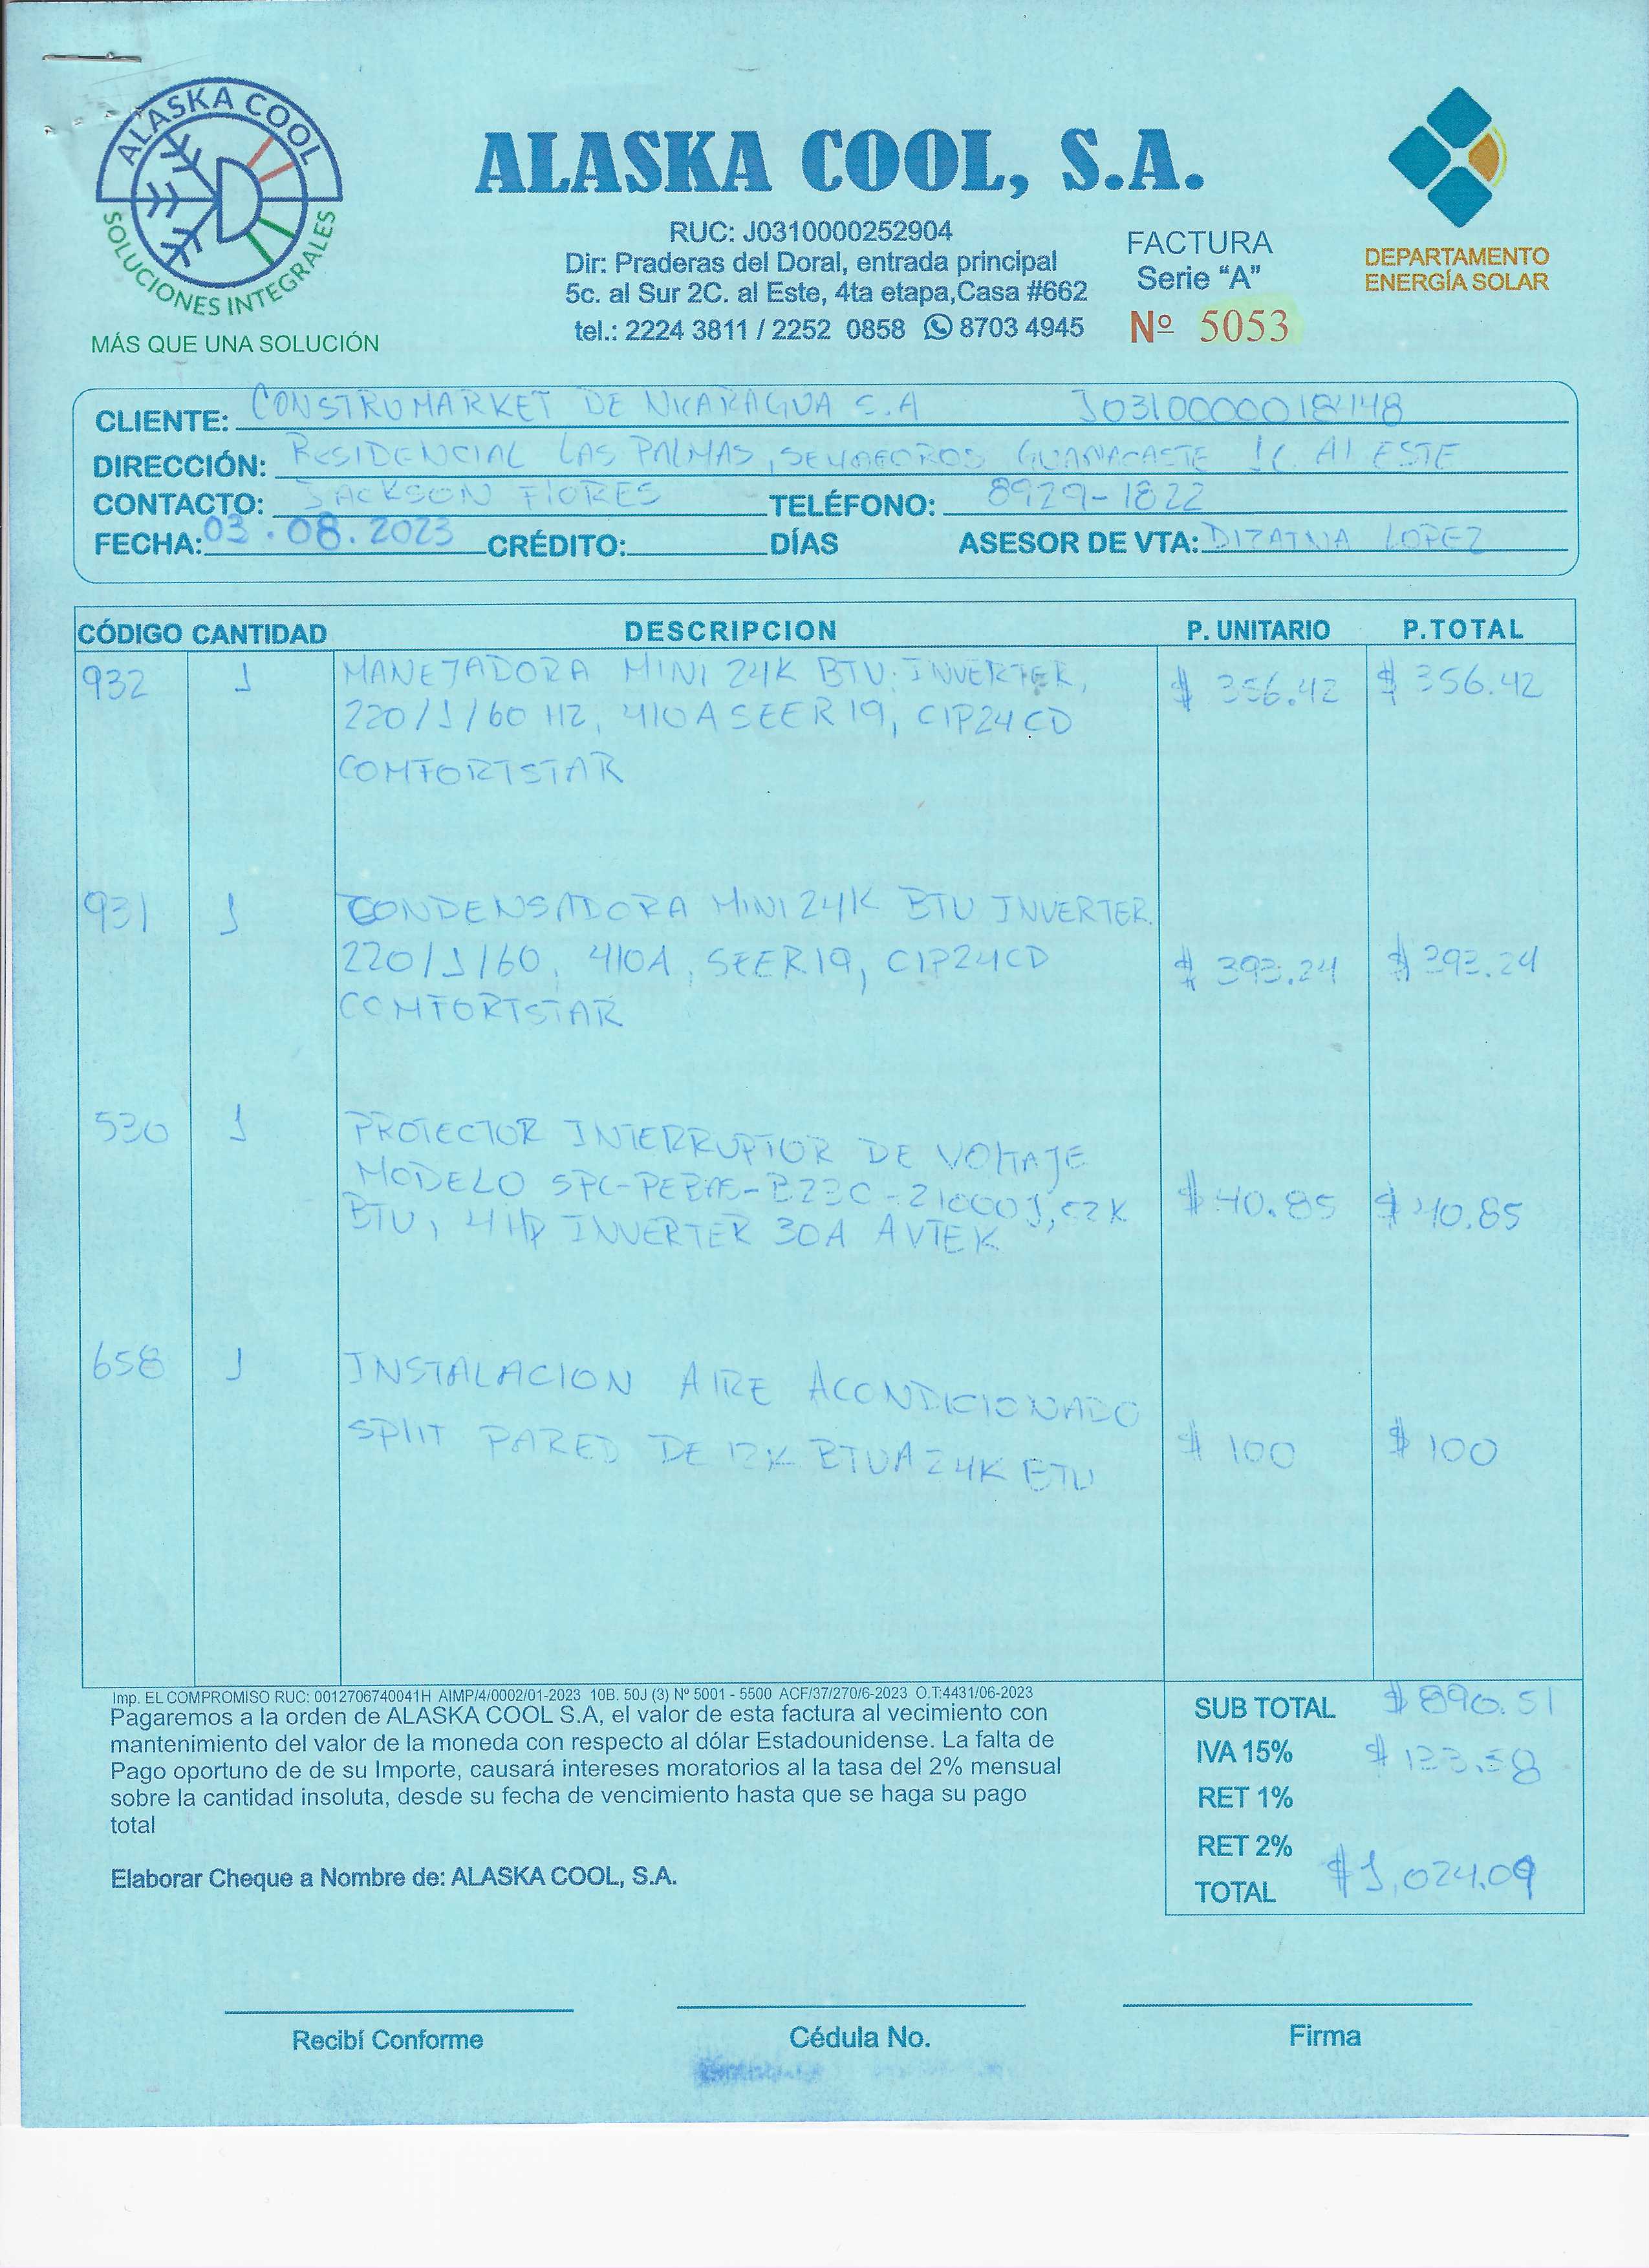 ALASKA COOL
SOLUCIONES INTEGRALES
MÁS QUE UNA SOLUCIÓN
ALASKA COOL, S.A.
RUC: J0310000252904
Dir: Praderas del Doral, entrada principal
5c. al Sur 2C. al Este, 4ta etapa,Casa #662
tel.: 2224 3811 / 2252 0858 8703 4945
FACTURA
Serie "A"
Nº 5053
DEPARTAMENTO
ENERGÍA SOLAR
CLIENTE: CONSTRUMARKET DE NICARAGUA S.A J0310000018448
DIRECCIÓN: RESIDENCIAL LAS PALMAS, SEMAFOROS GUANACASTE 1C. Al ESTE
CONTACTO: JACKSON FlORES TELÉFONO: 8929-1822
FECHA: 03.08.2023 CRÉDITO: DÍAS ASESOR DE VTA: LOPEZ
CÓDIGO CANTIDAD DESCRIPCION P. UNITARIO P.TOTAL
932 1 MANEJADORA MINI 24K BTU INVERTER, $ 356.42 $ 356.42
220/1/60 HZ, 410A SEER 19, CIP24CD
COMFORTSTAR
931 1 CONDENSADORA MINI 24K BTU INVERTER
220/1/60, 410A, SEER19, CIP24CD $ 393.24 $ 393.24
COMFORTSTAR
530 1 PROTECTOR INTERRUPTOR DE VOltAJE
MODELO BTU, 4Hp INVERTER 30A AVTEK $ 40.85 $ 40.85
658 1 INSTALACION AIRE ACONDICIONADO
SPlIT PARED DE 12K BTU A 24K BTU $ 100 $ 100
Imp. EL COMPROMISO RUC: 0012706740041H AIMP/4/0002/01-2023 10B. 50J (3) Nº 5001 - 5500 ACF/37/270/6-2023 O.T:4431/06-2023
Pagaremos a la orden de ALASKA COOL S.A, el valor de esta factura al vecimiento con
mantenimiento del valor de la moneda con respecto al dólar Estadounidense. La falta de
Pago oportuno de de su Importe, causará intereses moratorios al la tasa del 2% mensual
sobre la cantidad insoluta, desde su fecha de vencimiento hasta que se haga su pago
total
Elaborar Cheque a Nombre de: ALASKA COOL, S.A.
SUB TOTAL $ 890.51
IVA 15% $ 133.58
RET 1%
RET 2%
TOTAL $1,024.09
Recibí Conforme Cédula No. Firma